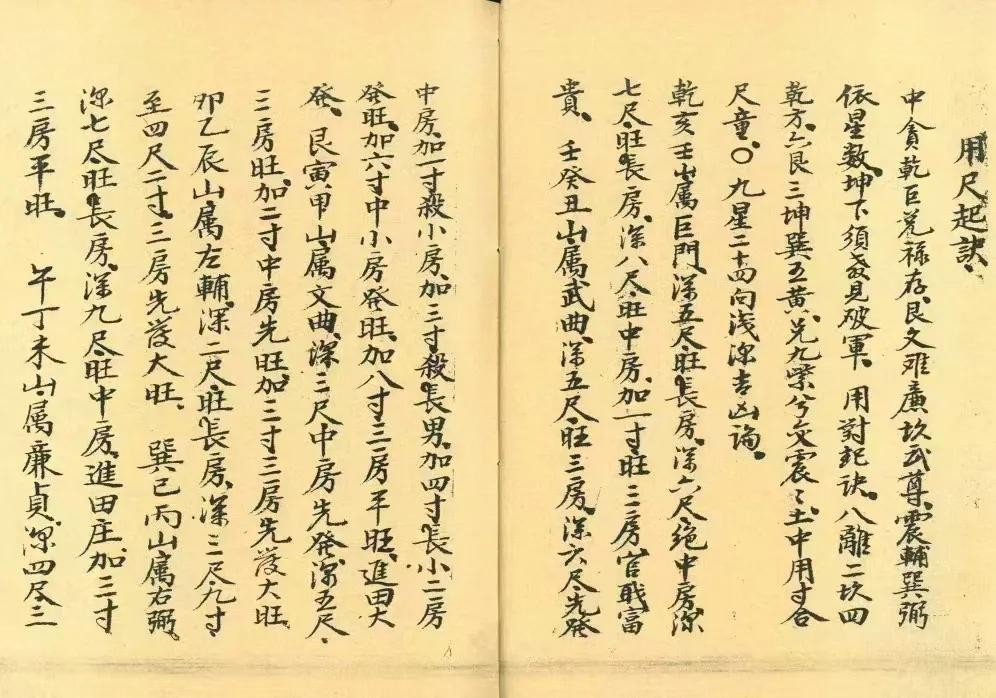 用尺起訣、
中貪乾巨兌祿存艮文难廉坎武尊、震輔巽弼
依星数、坤下須教見破軍、用對起訣、八離二坎四
乾方、六艮三坤巽五黃、兄九紫兮交震、土中用寸合
尺童、〇九星二十四向浅深吉凶論。
乾亥壬山属巨門、深五尺旺長房、深六尺絶中房深
七尺、旺長房、深八尺旺中房、加一寸旺三房官戢富
貴、壬癸丑山属武曲、深五尺旺三房、深六尺先發
中房、加一寸殺小房、加三寸殺長男、加四寸長小二房
發旺、加六寸中小房發旺、加八寸三房平旺、進田大
發、艮寅甲山属文曲、深三尺中房先發深五尺、
三房旺、加二寸中房先旺加三寸三房先發大旺、
卯乙辰山属左輔、深二尺旺長房、深三尺九寸
至四尺二寸、三房先發大旺、巽巳丙山属右弼
深七尺旺長房、深九尺旺中房、進田庄加二寸
三房平旺、午丁未山属廉貞深四尺三